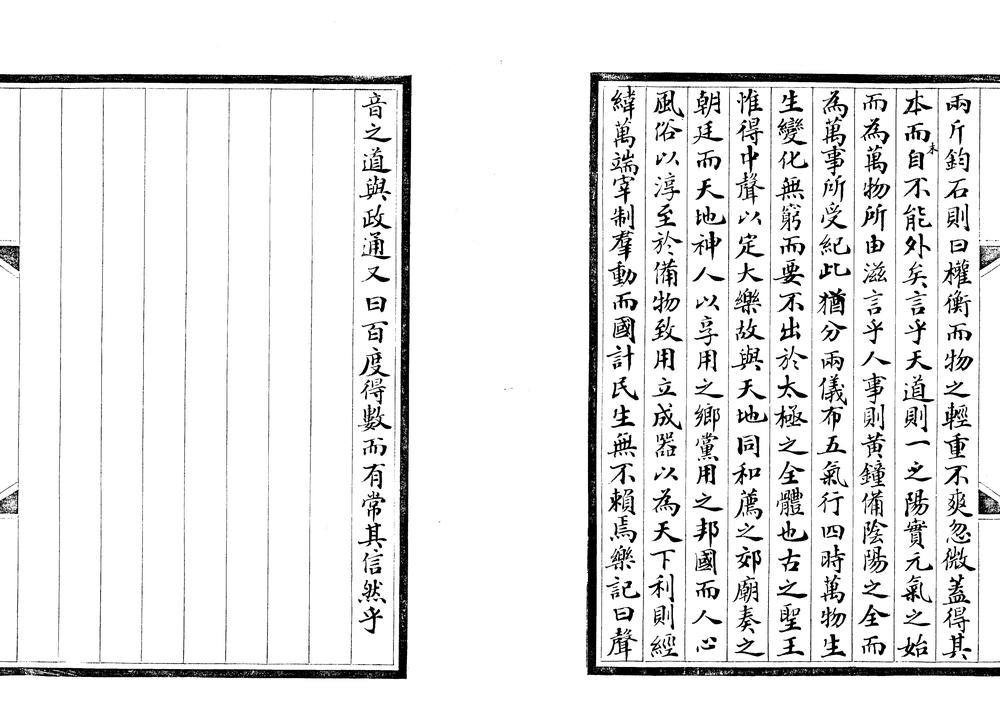 兩斤鈞石則曰權衡而物之輕重不爽忽微蓋得其
本而末自不能外矣言乎天道則一之陽實元氣之始
而為萬物所由滋言乎人事則黃鐘備陰陽之全而
為萬事所受紀此猶分兩儀布五氣行四時萬物生
生變化無窮而要不出於太極之全體也古之聖王
惟得中聲以定大樂故與天地同和薦之郊廟奏之
朝廷而天地神人以享用之鄉黨用之邦國而人心
風俗以淳至於備物致用立成器以為天下利則經
緯萬端宰制羣動而國計民生無不賴焉樂記曰聲
音之道與政通又曰百度得數而有常其信然乎